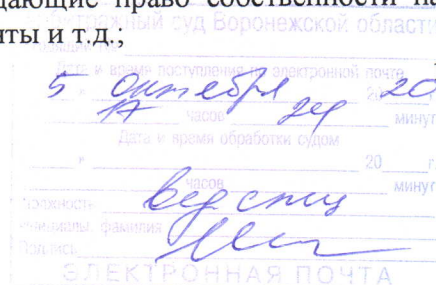 дающие право собственности на
Арбитражный суд Воронежской области
нты и т.д.;
Дата и время поступления по электронной почте
5 октября 20
17 часов 24 минут
Дата и время обработки судом
" 20 г.
часов минут
Должность вед спец
инициалы, фамилия
Подпись
ЭЛЕКТРОННАЯ ПОЧТА